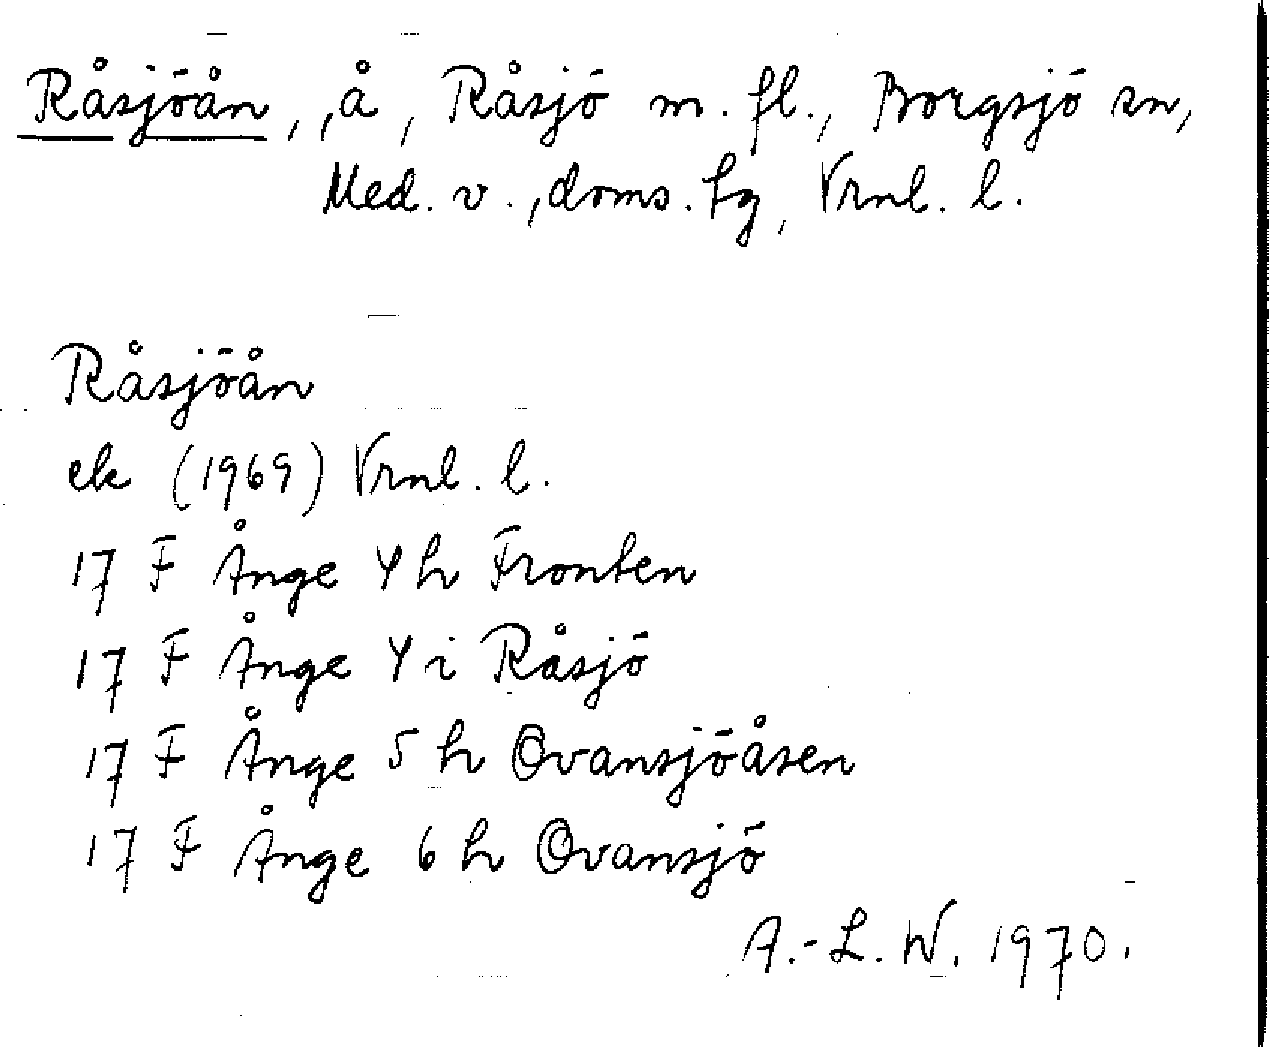 Råsjöån, ,å, Råsjö m. fl., Borgsjö sn,
Med. v., doms. fg, Vrnl. l.
Råsjöån
ek (1969) Vrnl. l.
17 F Ånge 4 h Fronten
17 F Ånge 4 i Råsjö
17 F Ånge 5 h Ovansjöåsen
17 F Ånge 6 h Ovansjö
A.-L. W. 1970.